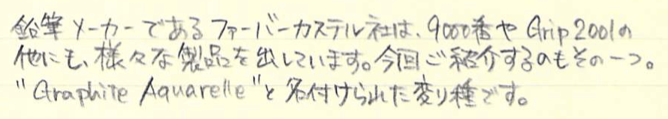 鉛筆メーカーであるファーバーカステル社は、9000番やGrip2001の
他にも、様々な製品を出しています。今回ご紹介するのもその一つ。
"Graphite Aquarelle"と名付けられた変り種です。